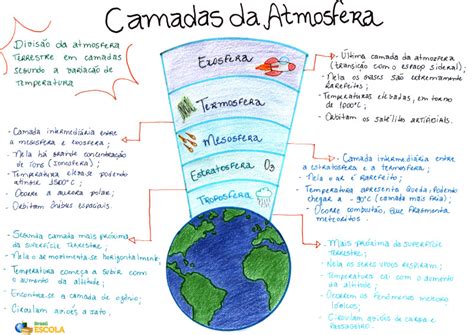 Camadas da Atmosfera
Divisão da atmosfera
terrestre em camadas
segundo a variação de
temperatura
Exosfera
Termosfera
Mesosfera
Estratosfera O3
Troposfera
- Última camada da atmosfera
(transição com o espaço sideral);
- Nela os gases são extremamente
rarefeitos;
- Temperaturas elevadas, em torno
de 1000°C;
- Orbitam os satélites artificiais.
- Camada intermediária entre
a mesosfera e exosfera;
- Nela há grande concentração
de íons (ionosfera);
- Temperatura eleva-se podendo
atingir 1500°C;
- Ocorre a aurora polar;
- Orbitam ônibus espaciais.
- Camada intermediária entre
a estratosfera e a termosfera;
- Nela o ar é rarefeito;
- Temperatura apresenta queda, podendo
chegar a -90°C (camada mais fria);
- Ocorre combustão, que fragmenta
meteoritos.
- Segunda camada mais próxima
da superfície terrestre;
- Nela o ar movimenta-se horizontalmente;
- Temperatura começa a subir com
o aumento da altitude;
- Encontra-se a camada de ozônio;
- Circulam aviões a jato.
- Mais próxima da superfície
terrestre;
- Nela os seres vivos respiram;
- Temperatura cai com o aumento
da altitude;
- Ocorrem os fenômenos meteoro
lógicos;
- Circulam aviões de carga e
Brasil
ESCOLA